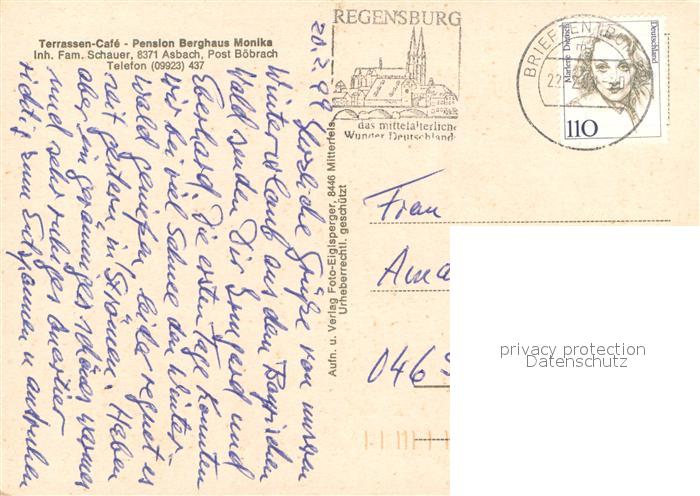 Terrassen-Café - Pension Berghaus Monika
Inh. Fam. Schauer, 8371 Asbach, Post Böbrach
Telefon (09923) 437
20.2.99 Herzliche Grüße von unserem
Winterurlaub aus dem Bayrischen
Wald senden Dir Irmgard und
Eberhard. Die ersten Tage konnten
wir bei viel Schnee den Winter-
wald genießen, leider regnet es
seit gestern in Strömen. Haben
aber ein geräumiges schönes warmes
und sehr ruhiges Quartier
richtig zum Entspannen u. ausruhen
Aufn. u. Verlag Foto-Eiglsperger, 8446 Mitterfels
Urheberrechtl. geschützt
REGENSBURG
das mittelalterliche
Wunder Deutschlands
BRIEFZENTRUM
Marlene Dietrich
Deutschland
110
Frau
046
privacy protection
Datenschutz